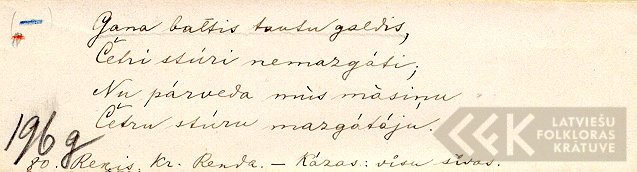 (-)
Gana baltis tautu galdis,
Četri stūri nemazgāti;
Nu pārveda mūs māsiņu
Četru stūru mazgātāju.
1969
80. Reņģis, Kr. Renda. – Kāzas: visu sīvas.
LATVIEŠU
FOLKLORAS
KRĀTUVE